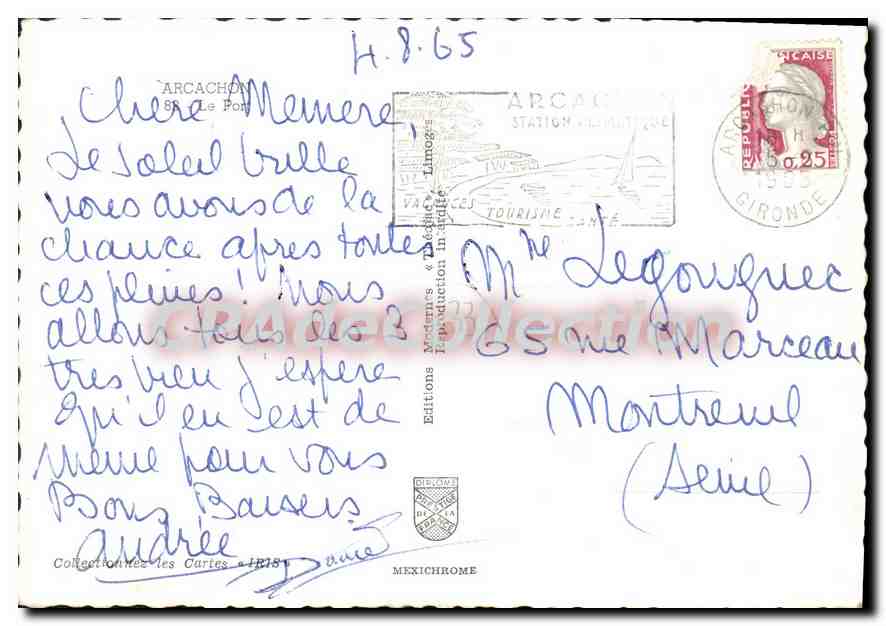 4.8.65
ARCACHON
88 - Le Port
Chere Memere,
Le soleil brille
nous avons de la
chance apres toutes
ces pluies! Nous
allons tous les 3
tres bien j'espere
qu'il en est de
meme pour vous
Bons Baisers
Andrée
Collectionnez les Cartes «IRIS»
Editions Modernes «Théojac», Limoges
Reproduction interdite
DIPLOME
PRESTIGE
DE LA
FRANCE
MEXICHROME
ARCACHON
STATION CLIMATIQUE
VACANCES TOURISME SANTÉ
REPUBLIQUE FRANCAISE
0,25
ARCACHON
1965
GIRONDE
Mme Legouguec
65 rue Marceau
Montreuil
(Seine)
CPAdeCollection